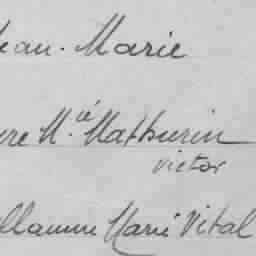 Jean-Marie
re Mie Mathurin
victor
llaume Marie Vital